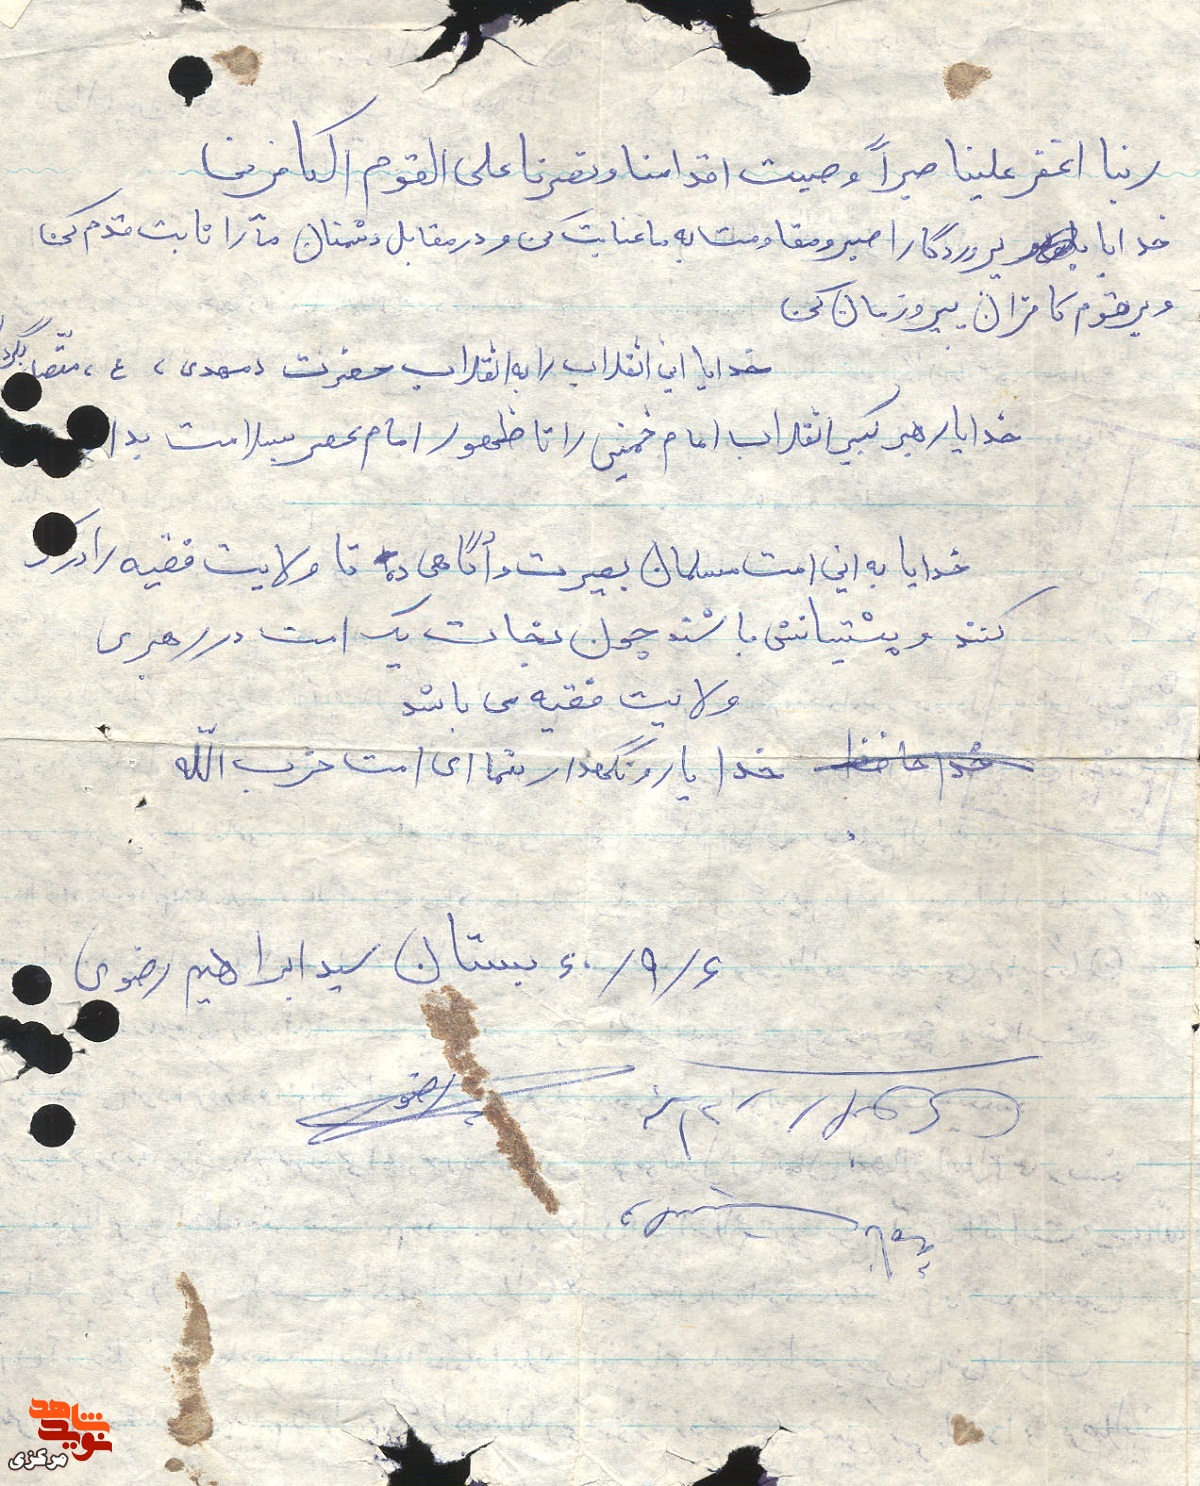 ربنا اغفر علینا صبراً و صبت اقدامنا ونصرنا علی القوم الکافرین
خدایا پروردگارا صبر و مقاومت به ما عنایت کن و در مقابل دشمنان ما را ثابت قدم کن
و بر قوم کافران پیروزمان کن
خدایا این انقلاب را به انقلاب حضرت مهدی ، ع ، متصل بگردان
خدایا رهبر کبیر انقلاب امام خمینی را تا ظهور امام عصر بسلامت بدار
خدایا به این امت مسلمان بصیرت و آگاهی ده تا ولایت فقیه را درک
کنند و پشتیبانش باشند چون نجات یک امت در رهبری
ولایت فقیه می باشد
خداحافظ خدا یار و نگهدار شما ای امت حزب الله
۶۰/۹/۶ بستان سید ابراهیم رضوی
رضوی
نوید شاهد
مرکزی